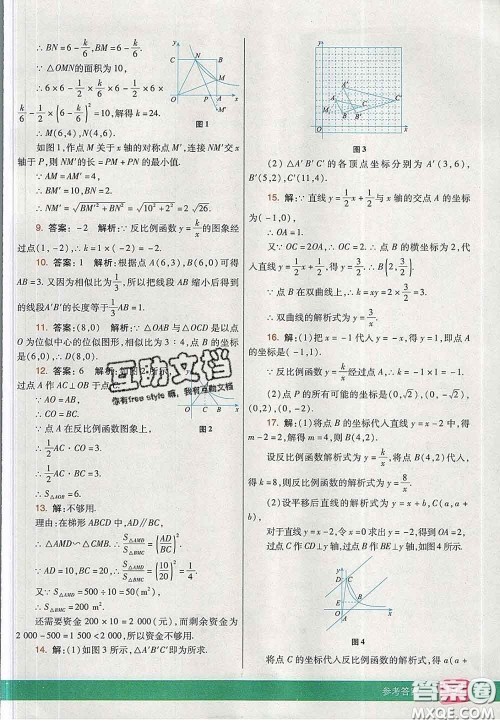 ∴ BN=6-k/6, BM=6-k/6.
∵ △OMN的面积为10,
∴ 6×6-1/2×6×k/6-1/2×6×
k/6-1/2×(6-k/6)²=10,解得k=24.
∴ M(6,4),N(4,6).
图1
如图1,作点M关于x轴的对称点M′,连接NM′交x
轴于P,则NM′的长=PM+PN的最小值.
∵ AM=AM′=4,
∴ BM′=10,BN=2,
∴ NM′=√(BM′²+BN²)=√(10²+2²)=2√26.
9. 答案:-2 解析:∵反比例函数y=k/x的图象经
过点(1,-2),∴k=1×(-2)=-2.
10. 答案:1 解析:根据点A(6,3),B(6,0)可得
AB=3.又因为相似比为1/3,所以以原点为位似中心得到
的线段A′B′的长度等于1/3AB=1/3×3=1.
11. 答案:(8,0) 解析:∵△OAB与△OCD是以点
O为位似中心的位似图形,相似比为3:4,点B的坐标
是(6,0),∴D(8,0).
12. 答案:6 解析:如图2所示,
过点A作AC⊥OB于点
∵ AO=AB,
∴ CO=BC.
图2
∵ 点A在反比例函数图象上,
∴ 1/2AC·CO=3.
∴ 1/2AC·BC=3.
∴ S△AOB=6.
13. 解:不够用.
理由:在梯形ABCD中,AD∥BC,
∴ △AMD∽△CMB,∴ S△AMD/S△BMC=(AD/BC)².
∵ AD=10,BC=20,∴ S△AMD/S△BMC=(10/20)²=1/4.
又∵ S△AMD=500÷10=50(m²),
∴ S△BMC=200 m².
还需要资金200×10=2 000(元),而剩余资金为
2 000-500=1 500<2 000,所以资金不够用.
14. 解:(1)如图3所示,△A′B′C′即为所求.
图3
(2)△A′B′C′的各顶点坐标分别为A′(3,6),
B′(5,2),C′(11,4).
15. 解:∵直线y=1/2x+1/2与x轴的交点A的坐标
为(-1,0),
∴ OA=1.
又∵ OC=2OA,∴ OC=2.∴ 点B的横坐标为2,代
入直线y=1/2x+1/2,得y=3/2.∴ B(2,3/2).
∵ 点B在双曲线上,∴ k=xy=2×3/2=3.
∴ 双曲线的解析式为y=3/x.
16. 解:(1)把x=-1代入y=-x-1,得y=0,即点A的
坐标是(-1,0).
∵ 反比例函数y=
∴
(2)点P的所有可能的坐标是(0,1),(0,-1),
(-2,0),(0,0).
17. 解:(1)将点B的坐标代入直线y=x-2中,得
m-2=2,解得m=4,则B(4,2).
设反比例函数解析式为y=k/x,将点B(4,2)代入,
得k=8,则反比例函数解析式为y=8/x.
(2)设平移后直线的解析式为y=x+b,C(a,a+
b).
对于直线y=x-2,令x=0,得到y=-2,得到OA=2,过
点C作CD⊥y轴,过点B作BE⊥y轴,如图4所示.
图4
将点C的坐标代入反比例函数的解析式,得a(a+
参考答案
互助文档
你有free style,我有互助文档!
答案圈
MXQE.COM